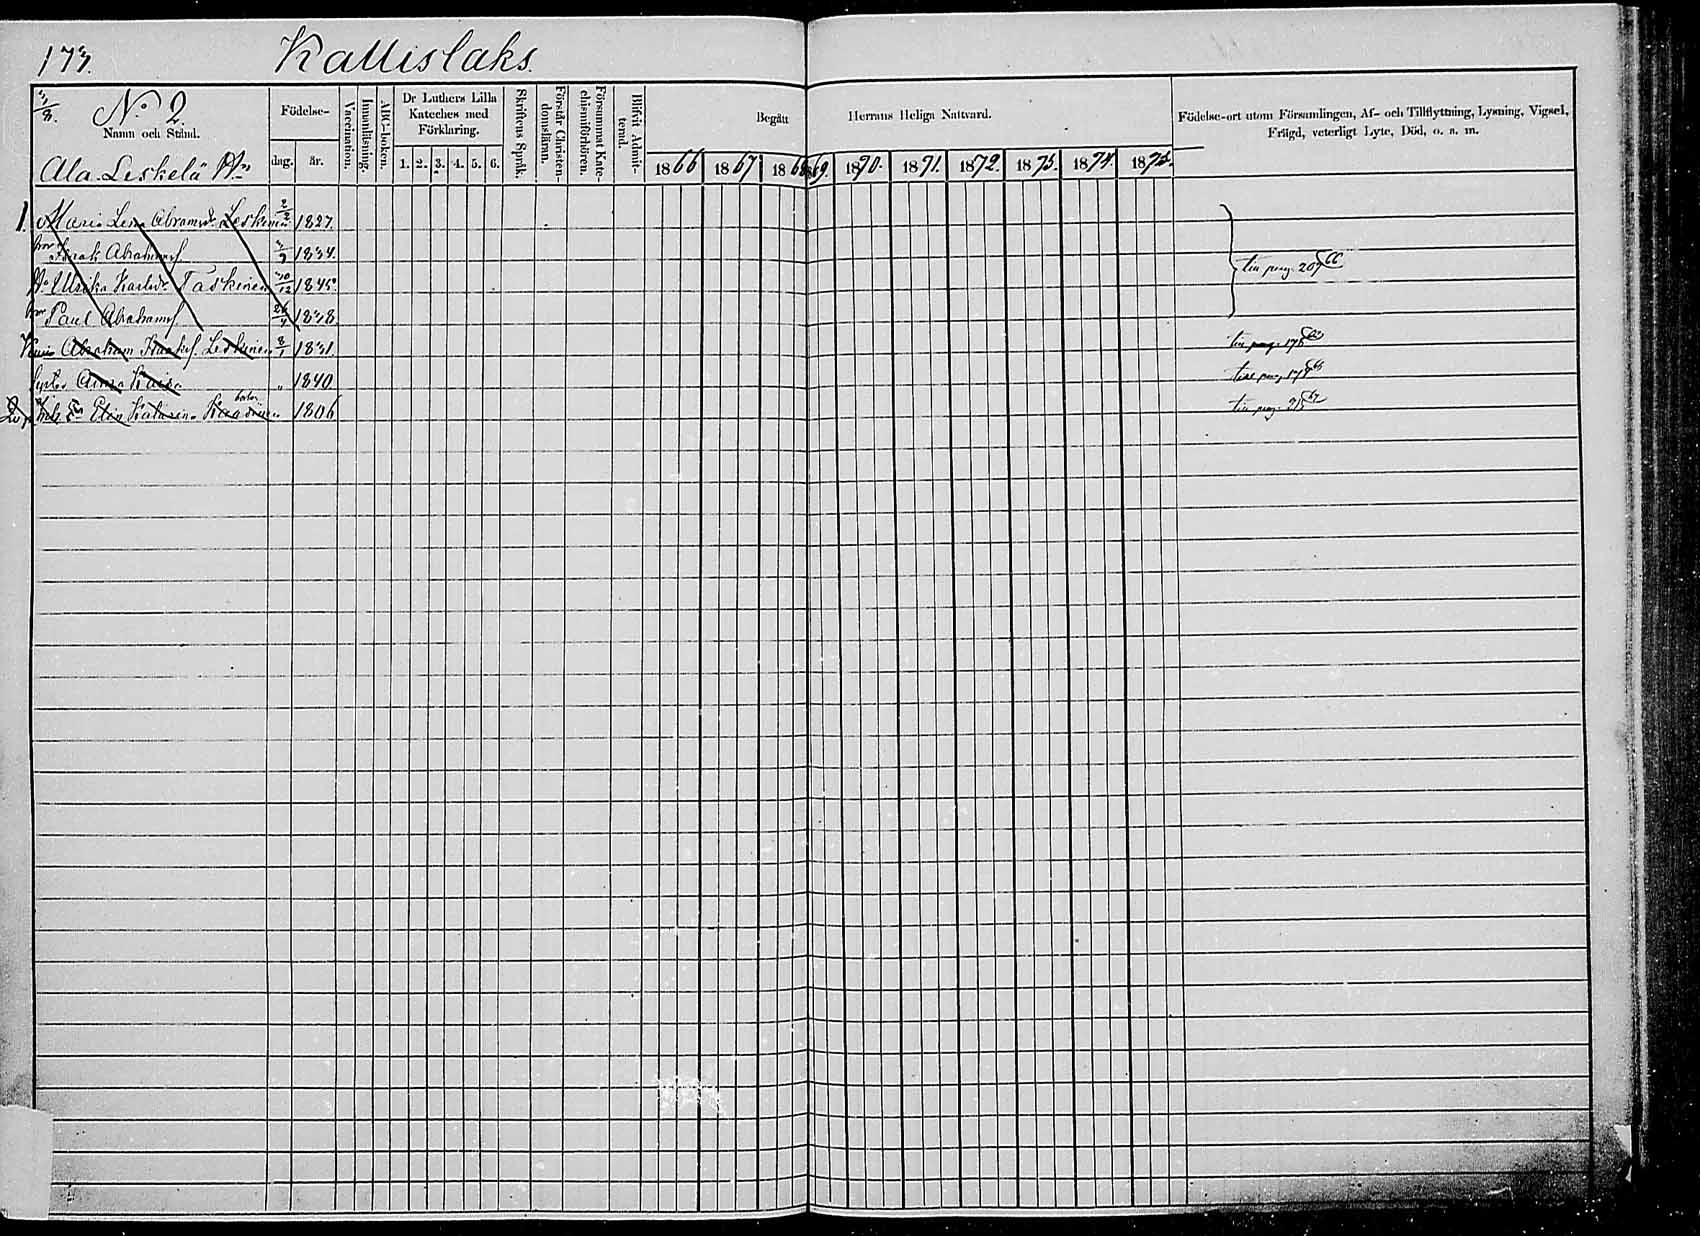 173. Kallislaks.
N:o 2.
Namn och Stånd.
Ala-Leskelä
Födelse-
dag. år.
Vaccination.
Innanläsning.
ABC-boken.
Dr Luthers Lilla
Kateches med
Förklaring.
1. 2. 3. 4. 5. 6.
Skriftens Språk.
Förstår Christen-
domsläran.
Försummat Kate-
chismiförhören.
Blifvit Admit-
terad.
Begått Herrans Heliga Nattvard.
1866 1867 1868 1869. 1870. 1871. 1872. 1873. 1874. 1875.
Födelse-ort utom Församlingen, Af- och Tillflyttning, Lysning, Vigsel,
Frägd, veterligt Lyte, Död, o. s. m.
1. Maria Lena Abramsdr Leskinen 2/2 1827.
Isaak Abrahamsf. 1834.
Ulrika Karlsdr Taskinen 1845.
Paul Abrahamsf. 1838. till pag. 207 66
Abraham Leskinen 8/1 1831. till pag. 178
Anna Kaisa " 1840. till pag. 178
Elin Katarina 1806 till pag. 215 67